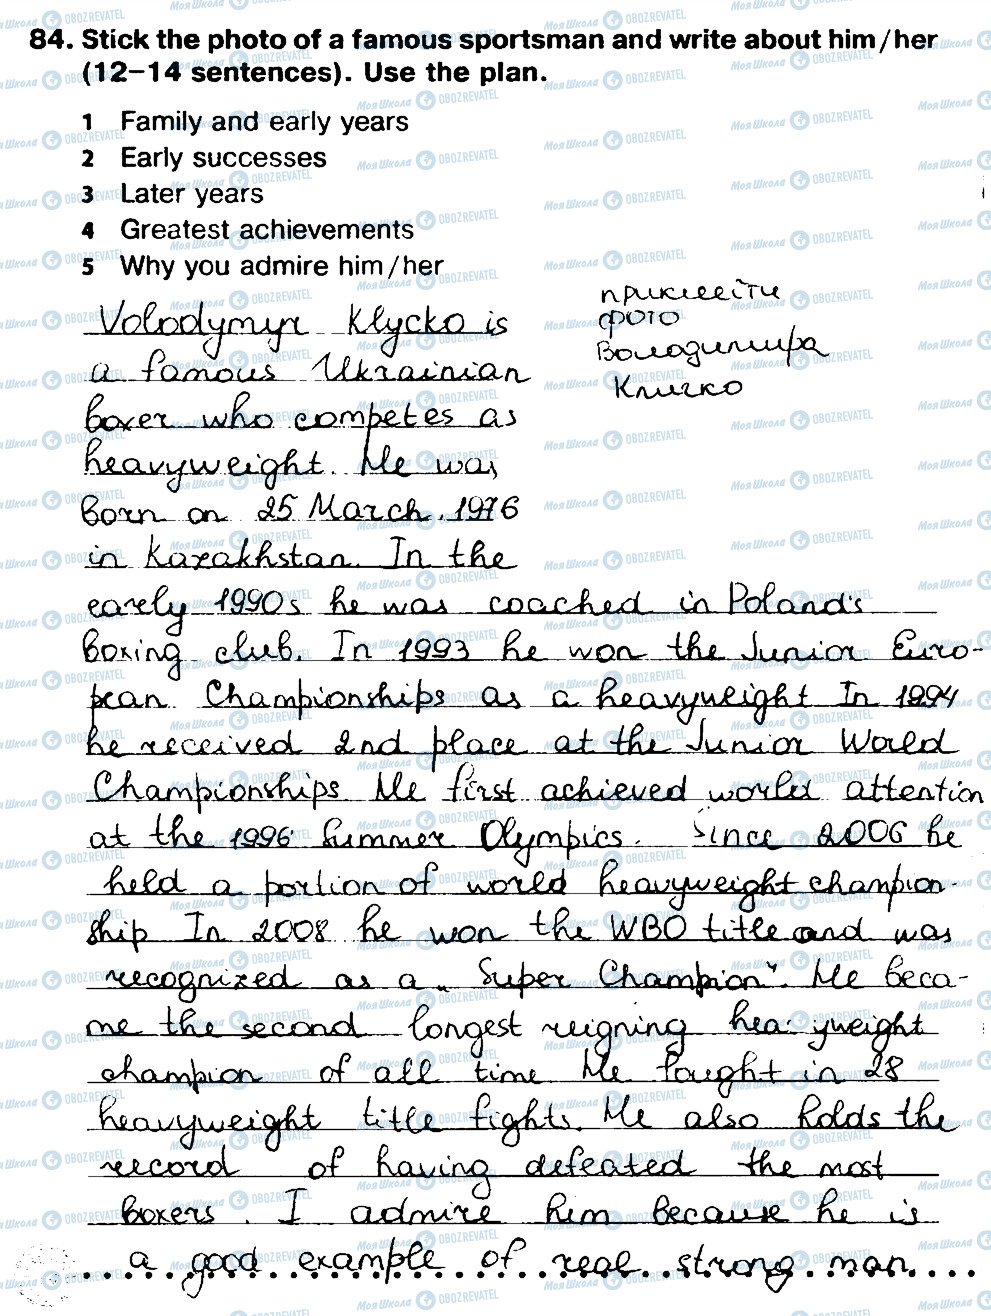 84. Stick the photo of a famous sportsman and write about him/her
(12–14 sentences). Use the plan.
1 Family and early years
2 Early successes
3 Later years
4 Greatest achievements
5 Why you admire him/her
приклеїти
фото
Володимира
Кличко
Volodymyr Klycko is
a famous Ukrainian
boxer who competes as
heavyweight. He was
born on 25 March, 1976
in Kazakhstan. In the
early 1990s he was coached in Poland's
boxing club. In 1993 he won the Junior Euro-
pean Championships as a heavyweight In 1994
he received 2nd place at the Junior World
Championships He first achieved world attention
at the 1996 Summer Olympics. Since 2006 he
held a portion of world heavyweight champion-
ship In 2008 he won the WBO title and was
recognized as a „Super Champion". He beca-
me the second longest reigning heavyweight
champion of all time He fought in 28
heavyweight title fights. He also holds the
record of having defeated the most
boxers. I admire him because he is
a good example of real strong man